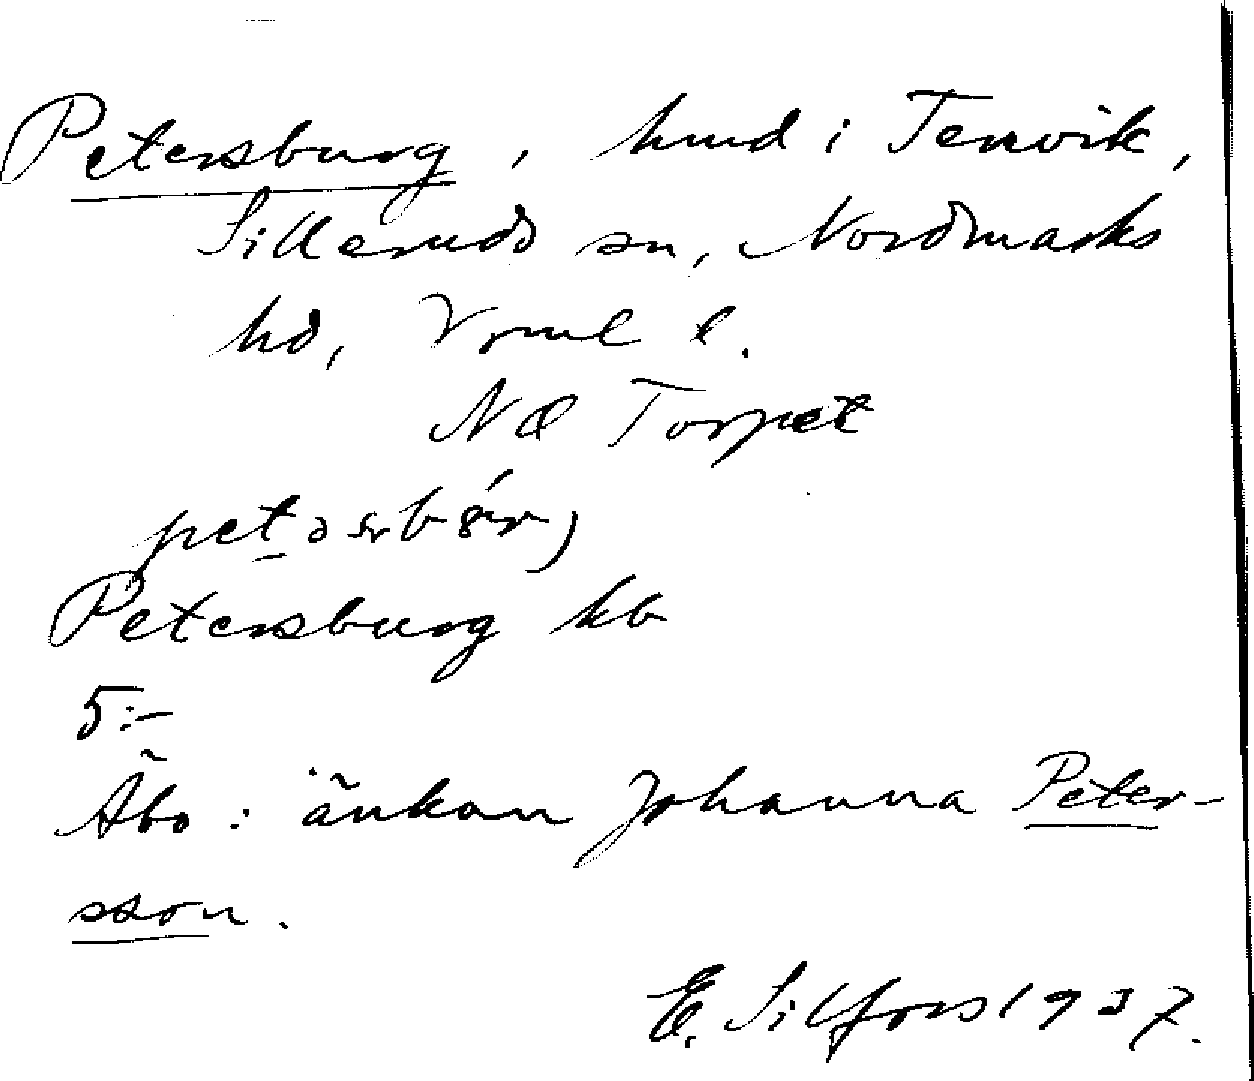 Petersburg, hmd i Tenvik,
Silleruds sn, Nordmarks
hd, Vrml l.
NO Torpet
Petersburg kb
5:-
Åbo: änkan Johanna Peter-
sson.
E. Silfors 1937.